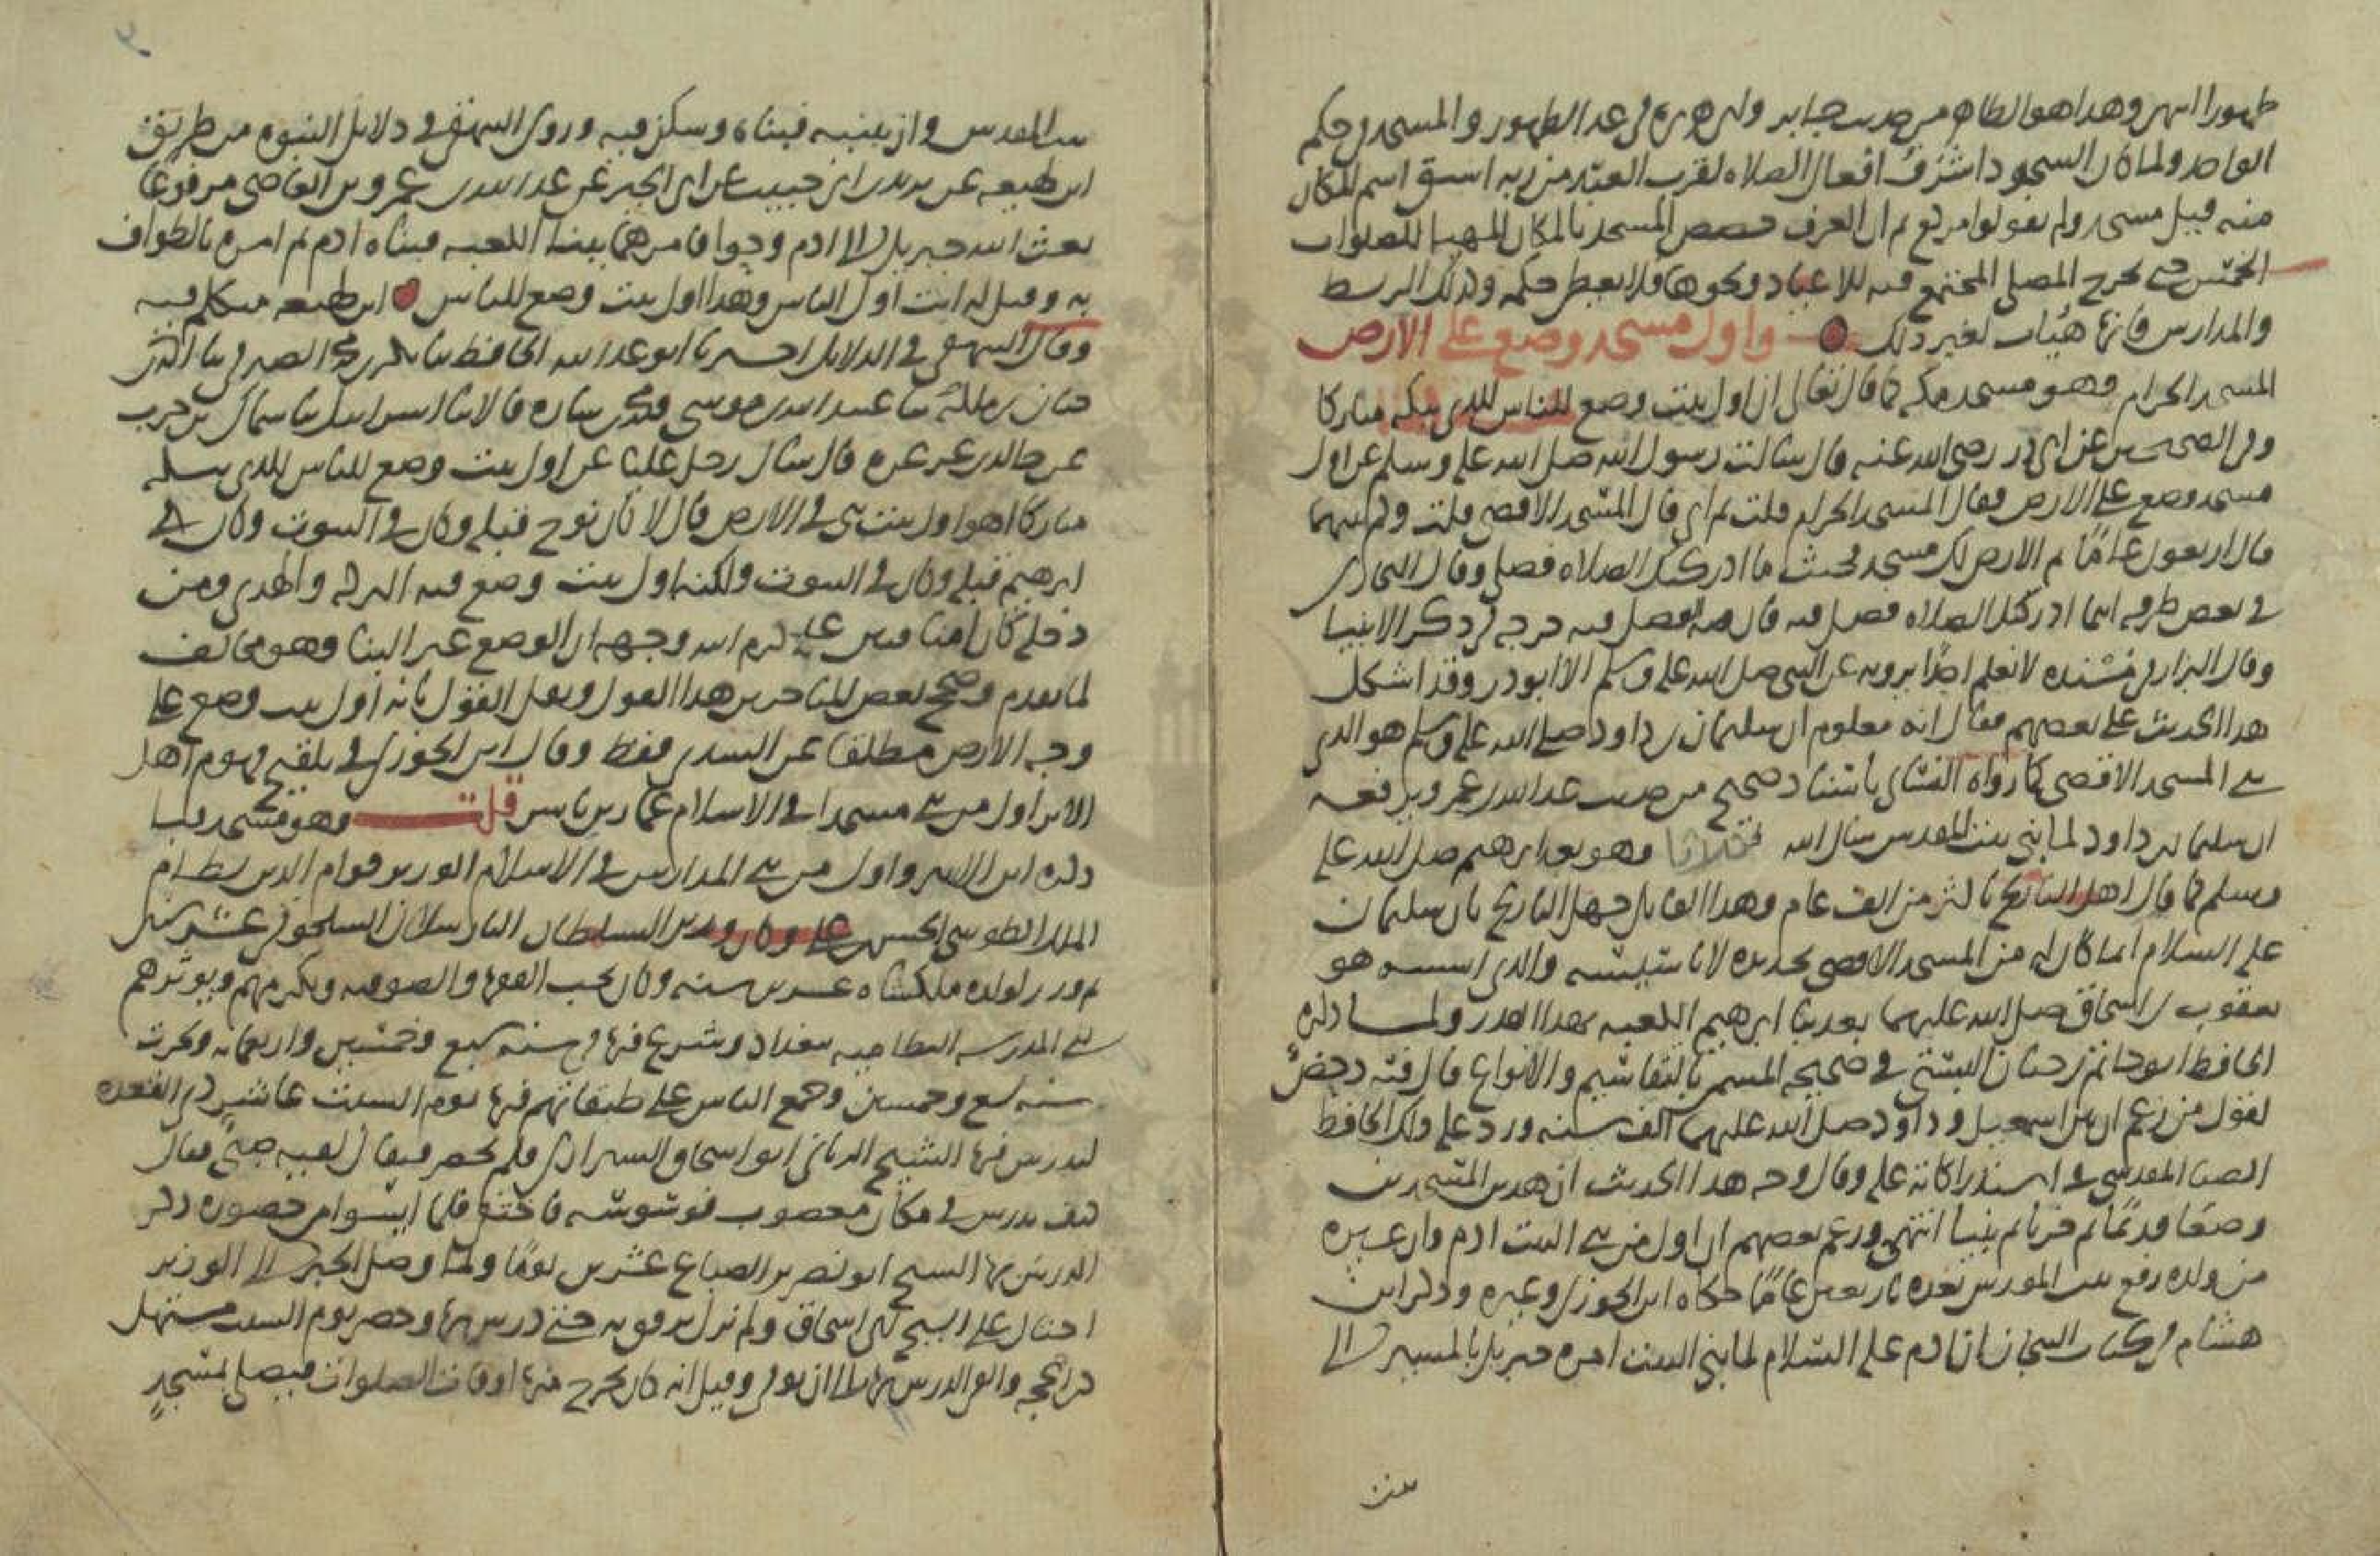 طهورا انتهى وهذا هو الظاهر من حديث جابر وابي هريرة في عد الطهور والمسجد في حكم
الواحد ولما كان السجود اشرف افعال الصلاه لقرب العبد من ربه اشتق اسم المكان
منه فقيل مسجد ولم يقولوا مركع ثم ان العرف خصص المسجد بالمكان المهيا للصلوات
الخمس حتى يخرج المصلى المجتمع فيه للاعياد ونحوها فلا يعطى حكمه وكذلك الربط
والمدارس فانها هيأت لغير ذلك واول مسجد وضع على الارض
المسجد الحرام وهو مسجد مكه كما قال تعالى ان اول بيت وضع للناس للذي ببكه مباركا
وفي الصحيحين عن ابي ذر رضي الله عنه قال سالت رسول الله صلى الله عليه وسلم عن اول
مسجد وضع على الارض فقال المسجد الحرام قلت ثم اي قال المسجد الاقصى قلت وكم بينهما
قال اربعون عاما ثم الارض لك مسجد فحيث ما ادركتك الصلاه فصل وقال البخاري
في بعض طرقه اينما ادركتك الصلاه فصل فيه فان الفضل فيه خرجه في ذكر الانبيا
وقال البزار في مسنده لا نعلم احدا يرويه عن النبي صلى الله عليه وسلم الا ابو ذر وقد اشكل
هذا الحديث على بعضهم فقال انه معلوم ان سليمان بن داود صلى الله عليه وسلم هو الذي
بنى المسجد الاقصى كما رواه النسائي باسناد صحيح من حديث عبد الله بن عمرو يرفعه
ان سليمان بن داود لما بنى بيت المقدس سال الله ثلاثا وهو بعد ابرهيم صلى الله عليه
وسلم كما قال اهل التاريخ باكثر من الف عام وهذا القايل جهل التاريخ فان سليمان
عليه السلام انما كان له من المسجد الاقصى تجديده لا تاسيسه والذي اسسه هو
يعقوب بن اسحاق صلى الله عليهما بعد بنا ابرهيم الكعبه بهذا القدر ولما ذكره
الحافظ ابو حاتم بن حبان البستي في صحيحه المسمى بالتقاسيم والانواع قال فيه دحض
لقول من زعم ان بين اسمعيل وداود صلى الله عليهما الف سنه ورد عليه ذلك الحافظ
الضيا المقدسي في استدراكاته عليه وقال وجه هذا الحديث ان هذين المسجدين
وضعا قديما ثم خربا ثم بنيا انتهى وزعم بعضهم ان اول من بنى البيت ادم وان غيره
من ولده رفع بيت المقدس بعده باربعين عاما حكاه ابن الجوزي وغيره وذكر ابن
هشام في كتاب التيجان ان ادم عليه السلام لما بنى البيت امره جبريل بالمسير الى
بيت
بيت المقدس وان يبنيه فبناه وسكن فيه وروى البيهقي في دلايل النبوه من طريق
ابن لهيعه عن يزيد بن ابي حبيب عن ابي الخير عن عبد الله بن عمرو بن العاصي مرفوعا
بعث الله جبريل الى ادم وحوا فامرهما ببنا الكعبه فبناه ادم ثم امره بالطواف
به وقيل له انت اول الناس وهذا اول بيت وضع للناس ابن لهيعه متكلم فيه
وقال البيهقي في الدلايل اخبرنا ابو عبد الله الحافظ بكر بن محمد الصيرفي
ثنا عبيد الله بن موسى ومحمد بن سابق قالا ثنا اسرائيل ثنا سماك بن حرب
عن خالد بن عرعره قال سال رجل عليا عن اول بيت وضع للناس للذي ببكه
مباركا اهو اول بيت بني في الارض قال لا كان نوح قبله وكان في البيوت وكان
ابرهيم قبله وكان في البيوت ولكنه اول بيت وضع فيه البركه والهدى ومن
دخله كان امنا فبين علي كرم الله وجهه ان الوضع غير البنا وهو مخالف
لما تقدم وصحح بعض المتاخرين هذا القول ونقل القول بانه اول بيت وضع على
وجه الارض مطلقا عن السدي فقط وقال ابن الجوزي في تلقيح فهوم اهل
الاثر اول من بنى مسجدا في الاسلام عمار بن ياسر قلت وهو مسجد قبا
ذكره ابن الاثير واول من بنى المدارس في الاسلام الوزير قوام الدين نظام
الملك الطوسي الحسن بن علي وكان وزير السلطان الب ارسلان السلجوقي عشر سنين
ثم وزر لولده ملكشاه عشرين سنه وكان يحب الفقها والصوفيه ويكرمهم ويوثرهم
بنى المدرسه النظاميه ببغداد وشرع فيها في سنه سبع وخمسين واربعمائه
سنه تسع وخمسين وجمع الناس على طبقاتهم فيها يوم السبت عاشر ذي القعده
ليدرس فيها الشيخ ابو اسحاق الشيرازي فلم يحضر فيقال لقيه صبي فقال
كيف تدرس في مكان مغصوب فوشوشه فاختفى فلما ايسوا من حضوره ذكر
الدرس بها الشيخ ابو نصر بن الصباغ عشرين يوما ولما وصل الخبر الى الوزير
احتال على الشيخ ابي اسحاق ولم يزل يرفق به حتى درس بها وحضر يوم السبت مستهل
ذي الحجه والقى الدرس بها الى ان توفي وقيل انه كان يخرج منها اوقات الصلوات فيصلي بمسجد